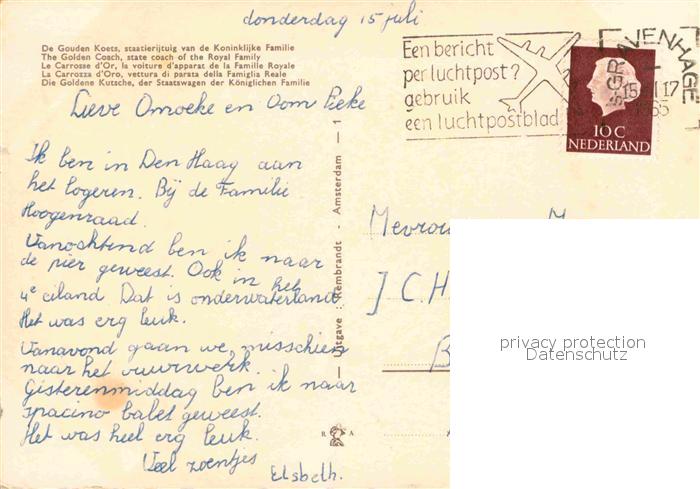 donderdag 15 juli
De Gouden Koets, staatierijtuig van de Koninklijke Familie
The Golden Coach, state coach of the Royal Family
Le Carrosse d'Or, la voiture d'apparat de la Famille Royale
La Carrozza d'Oro, vettura di parata della Famiglia Reale
Die Goldene Kutsche, der Staatswagen der Königlichen Familie
Lieve Omoeke en Oom Pieke
Ik ben in Den Haag aan
het logeren. Bij de Familie
Hoogenraad.
Vanochtend ben ik naar
de pier geweest. Ook in het
4e eiland Dat is onderwaterland
Het was erg leuk.
Vanavond gaan we misschien
naar het vuurwerk.
Gisterenmiddag ben ik naar
spacino balet geweest.
Het was heel erg leuk.
Veel zoentjes
Elsbeth.
Rembrandt - Amsterdam - 1
R A
Een bericht
per luchtpost?
gebruik
een luchtpostblad
'S-GRAVENHAGE
15 17
10 C
NEDERLAND
J C.H
B
privacy protection
Datenschutz